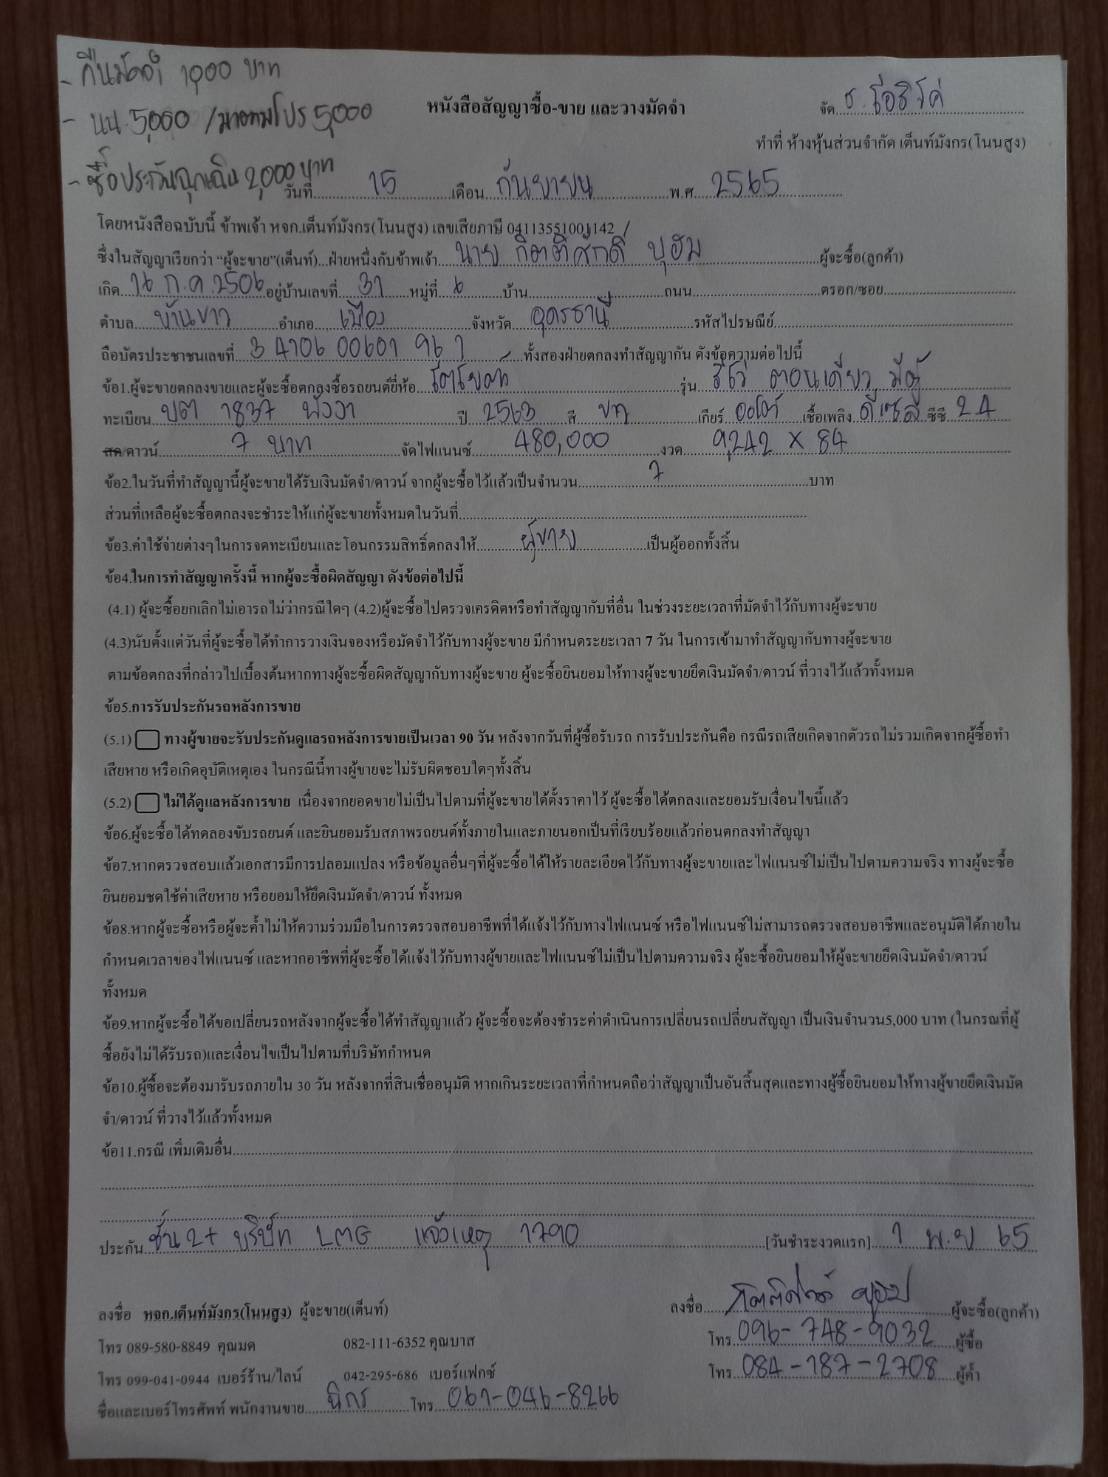 - คืนมัดจำ 1,000 บาท
- นน 5,000 / มาตามโปร 5,000
- ซื้อประกันฉุกเฉิน 2,000 บาท
หนังสือสัญญาซื้อ-ขาย และวางมัดจำ
จัด
ทำที่ ห้างหุ้นส่วนจำกัด เต็นท์มังกร(โนนสูง)
วันที่ 15 เดือน กันยายน พ.ศ 2565
โดยหนังสือฉบับนี้ ข้าพเจ้า หจก.เต็นท์มังกร(โนนสูง) เลขเสียภาษี 0411355100114​2
ซึ่งในสัญญาเรียกว่า "ผู้จะขาย"(เต็นท์)...ฝ่ายหนึ่งกับข้าพเจ้า นาย กิตติศักดิ์ บุฮม ผู้จะซื้อ(ลูกค้า)
เกิด 16 ก.ค. 2506 อยู่บ้านเลขที่ 31 หมู่ที่ 6 บ้าน ถนน ตรอก/ซอย
ตำบล บ้านขาว อำเภอ เมือง จังหวัด อุดรธานี รหัสไปรษณีย์
ถือบัตรประชาชนเลขที่ 3 4106 00601 96 1 ทั้งสองฝ่ายตกลงทำสัญญากัน ดังข้อความต่อไปนี้
ข้อ1.ผู้จะขายตกลงขายและผู้จะซื้อตกลงซื้อรถยนต์ยี่ห้อ โตโยต้า รุ่น รีโว่ ตอนเดียว มีตู้
ทะเบียน บต 1837 พังงา ปี 2563 สี ขาว เกียร์ ออโต้ เชื้อเพลิง ดีเซล ซีซี 2.4
สด/ดาวน์ 7 บาท จัดไฟแนนซ์ 480,000 งวด 9,242 x 84
ข้อ2.ในวันที่ทำสัญญานี้ผู้จะขายได้รับเงินมัดจำ/ดาวน์ จากผู้จะซื้อไว้แล้วเป็นจำนวน 7 บาท
ส่วนที่เหลือผู้จะซื้อตกลงจะชำระให้แก่ผู้จะขายทั้งหมดในวันที่
ข้อ3.ค่าใช้จ่ายต่างๆในการจดทะเบียนและโอนกรรมสิทธิ์ตกลงให้ ผู้ขาย เป็นผู้ออกทั้งสิ้น
ข้อ4.ในการทำสัญญาครั้งนี้ หากผู้จะซื้อผิดสัญญา ดังข้อต่อไปนี้
(4.1) ผู้จะซื้อยกเลิกไม่เอารถไม่ว่ากรณีใดๆ (4.2)ผู้จะซื้อไปตรวจเครดิตหรือทำสัญญากับที่อื่น ในช่วงระยะเวลาที่มัดจำไว้กับทางผู้จะขาย
(4.3)นับตั้งแต่วันที่ผู้จะซื้อได้ทำการวางเงินจองหรือมัดจำไว้กับทางผู้จะขาย มีกำหนดระยะเวลา 7 วัน ในการเข้ามาทำสัญญากับทางผู้จะขาย
ตามข้อตกลงที่กล่าวไปเบื้องต้นหากทางผู้จะซื้อผิดสัญญากับทางผู้จะขาย ผู้จะซื้อยินยอมให้ทางผู้จะขายยึดเงินมัดจำ/ดาวน์ ที่วางไว้แล้วทั้งหมด
ข้อ5.การรับประกันรถหลังการขาย
(5.1) ทางผู้ขายจะรับประกันดูแลรถหลังการขายเป็นเวลา 90 วัน หลังจากวันที่ผู้ซื้อรับรถ การรับประกันคือ กรณีรถเสียเกิดจากตัวรถ ไม่รวมเกิดจากผู้ซื้อทำ
เสียหาย หรือเกิดอุบัติเหตุเอง ในกรณีนี้ทางผู้ขายจะไม่รับผิดชอบใดๆทั้งสิ้น
(5.2) ไม่ได้ดูแลหลังการขาย เนื่องจากยอดขายไม่เป็นไปตามที่ผู้จะขายได้ตั้งราคาไว้ ผู้จะซื้อได้ตกลงและยอมรับเงื่อนไขนี้แล้ว
ข้อ6.ผู้จะซื้อได้ทดลองขับรถยนต์ และยินยอมรับสภาพรถยนต์ทั้งภายในและภายนอกเป็นที่เรียบร้อยแล้วก่อนตกลงทำสัญญา
ข้อ7.หากตรวจสอบแล้วเอกสารมีการปลอมแปลง หรือข้อมูลอื่นๆที่ผู้จะซื้อได้ให้รายละเอียดไว้กับทางผู้จะขายและไฟแนนซ์ไม่เป็นไปตามความจริง ทางผู้จะซื้อ
ยินยอมชดใช้ค่าเสียหาย หรือยอมให้ยึดเงินมัดจำ/ดาวน์ ทั้งหมด
ข้อ8.หากผู้จะซื้อหรือผู้จะค้ำไม่ให้ความร่วมมือในการตรวจสอบอาชีพที่ได้แจ้งไว้กับทางไฟแนนซ์ หรือไฟแนนซ์ไม่สามารถตรวจสอบอาชีพและอนุมัติได้ภายใน
กำหนดเวลาของไฟแนนซ์ และหากอาชีพที่ผู้จะซื้อได้แจ้งไว้กับทางผู้ขายและไฟแนนซ์ไม่เป็นไปตามความจริง ผู้จะซื้อยินยอมให้ผู้จะขายยึดเงินมัดจำ/ดาวน์
ทั้งหมด
ข้อ9.หากผู้จะซื้อได้ขอเปลี่ยนรถหลังจากผู้จะซื้อได้ทำสัญญาแล้ว ผู้จะซื้อจะต้องชำระค่าดำเนินการเปลี่ยนรถเปลี่ยนสัญญา เป็นเงินจำนวน5,000 บาท (ในกรณที่ผู้
ซื้อยังไม่ได้รับรถ)และเงื่อนไขเป็นไปตามที่บริษัทกำหนด
ข้อ10.ผู้ซื้อจะต้องมารับรถภายใน 30 วัน หลังจากที่สินเชื่ออนุมัติ หากเกินระยะเวลาที่กำหนดถือว่าสัญญาเป็นอันสิ้นสุดและทางผู้ซื้อยินยอมให้ทางผู้ขายยึดเงินมัด
จำ/ดาวน์ ที่วางไว้แล้วทั้งหมด
ข้อ11.กรณี เพิ่มเติมอื่น
ประกัน ชั้น 2+ บริษัท LMG แจ้งเหตุ 1790 [วันชำระงวดแรก] 1 พ.ย 65
ลงชื่อ หจก.เต็นท์มังกร(โนนสูง) ผู้จะขาย(เต็นท์) ลงชื่อ กิตติศักดิ์ บุฮม ผู้จะซื้อ(ลูกค้า)
โทร 089-580-8849 คุณมด 082-111-6352 คุณบาส โทร 096-748-9032 ผู้ซื้อ
โทร 099-041-0944 เบอร์ร้าน/ไลน์ 042-295-686 เบอร์แฟกซ์ โทร 084-187-2708 ผู้ค้ำ
ชื่อและเบอร์โทรศัพท์ พนักงานขาย นิกร โทร 061-046-8266